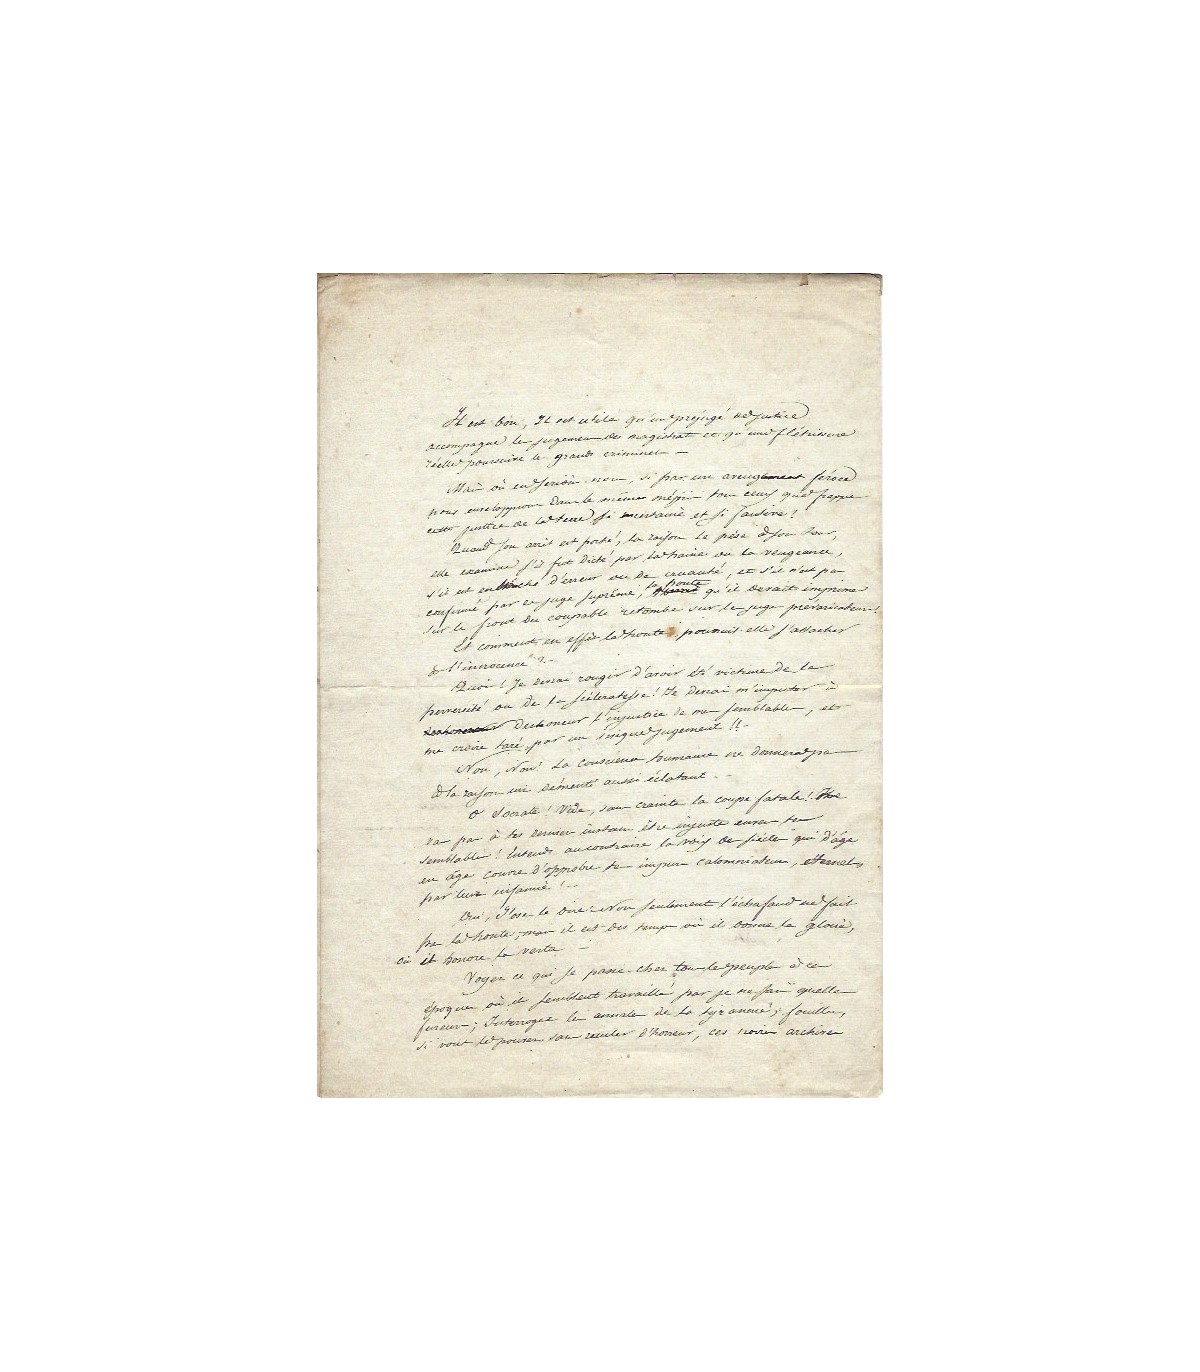 Il est bon, Il est utile qu'un préjugé de justice
accompagne le jugement des magistrat et qu'une flétrissure
réelle poursuive le grands criminel —
Mais où en serions-nous, si par un aveuglement féroce
nous enveloppions dans le même mépris tous ceux que frappe
cette justice de la terre si incertaine et si fautive?
Quand son arrêt est porté, la raison le pèse à son tour,
elle examine s'il fut dicté par la haine ou la vengeance,
s'il est entaché d'erreur ou de cruauté, et s'il n'est pas
confirmé par ce juge suprême, la honte qu'il devait imprimer
sur le front du coupable retombe sur le juge prévaricateur!
Et comment en effet la honte pourrait-elle s'attacher
à l'innocence? —
Quoi! Je devrai rougir d'avoir été victime de la
perversité ou de la scélératesse! Je devrai m'imputer à
deshoneur l'injustice de mes semblables, et
me croire taré, par un inique jugement!! —
Non, Non! La conscience humaine ne donnera pas
à la raison un démenti aussi éclatant —
O Socrate! Vide, sans crainte la coupe fatale!
va pas à tes derniers instans être injuste envers tes
semblables! Entends au contraire la voix des siècles qui d'âge
en âge couvre d'opprobre tes impurs calomniateurs, éternels
par leur infamie! —
Oui, J'ose le dire: Non seulement l'échafaud ne fait
pas la honte, mais il est des temps où il donne la gloire,
où il honore la vertu —
Voyez ce qui se passe chez tous les peuples à ces
époques où ils semblent travaillés par je ne sais quelle
fureur; Interrogez les annales de la tyrannie; fouillez,
si vous le pouvez sans reculer d'horreur, ces noires archives